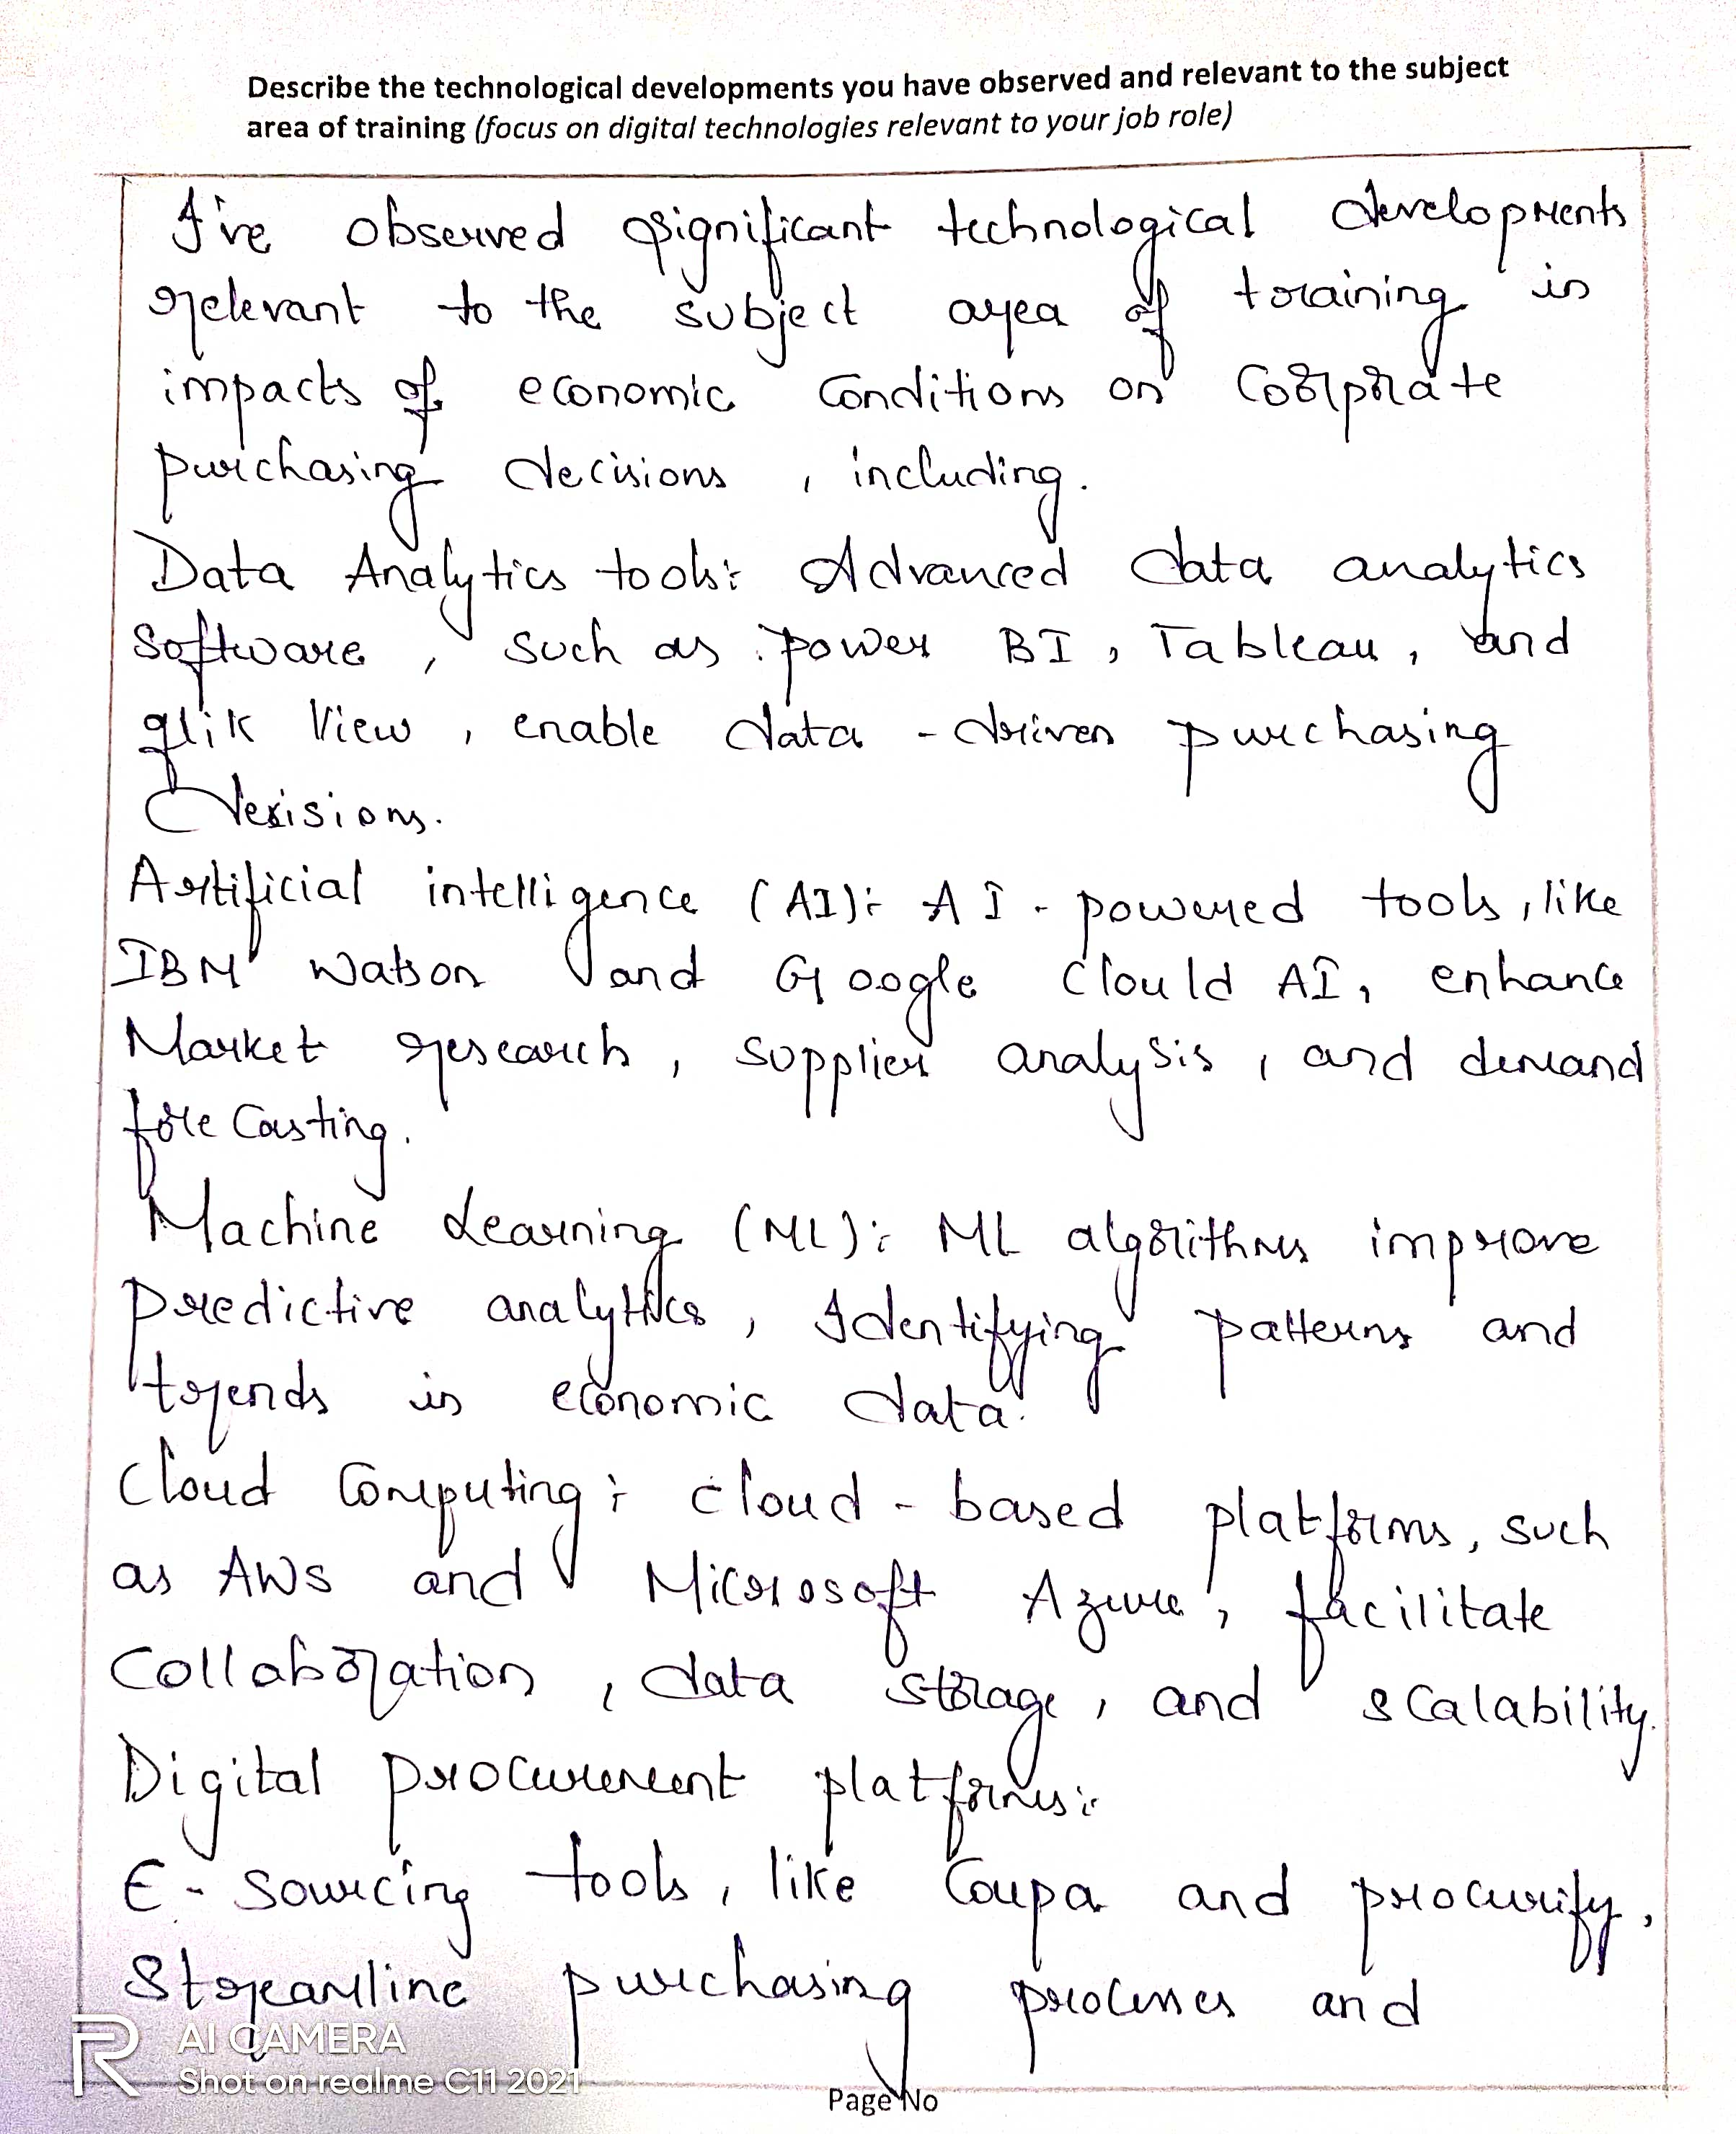 Describe the technological developments you have observed and relevant to the subject
area of training (focus on digital technologies relevant to your job role)
I've observed significant technological developments
relevant to the subject area of training in
impacts of economic conditions on corporate
purchasing decisions, including.
Data Analytics tools: Advanced data analytics
software, such as power BI, Tableau, and
qlik View, enable data-driven purchasing
decisions.
Artificial intelligence (AI): AI-powered tools, like
IBM Watson and Google Clould AI, enhance
Market research, supplier analysis, and demand
fore casting.
Machine Learning (ML): ML algorithms improve
Predictive analytics, Identifying patterns and
trends in economic data.
Cloud Computing: cloud-based platforms, such
as AWS and Microsoft Azure, facilitate
Collaboration, data storage, and scalability.
Digital procurement platforms:
E-sourcing tools, like Coupa and procurify,
Streamline purchasing processes and
AI CAMERA
Shot on realme C11 2021
Page No